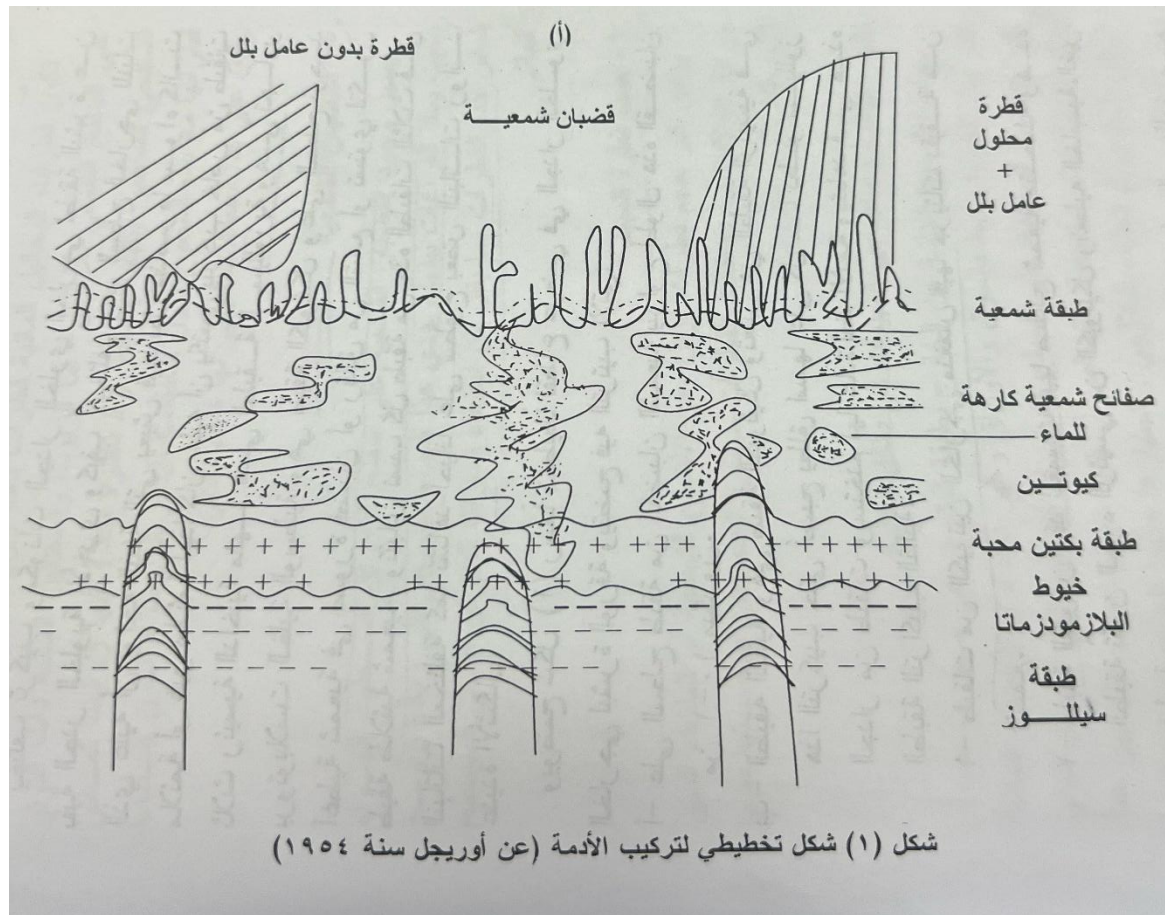 (أ)
قطرة بدون عامل بلل
قضبان شمعيـــة
قطرة
محلول
+
عامل بلل
طبقة شمعية
صفائح شمعية كارهة
للماء
كيوتـــين
طبقة بكتين محبة
خيوط
البلازمودزماتا
طبقة
سيللـــــوز
شكل (١) شكل تخطيطي لتركيب الأدمة (عن أوريجل سنة ١٩٥٤)